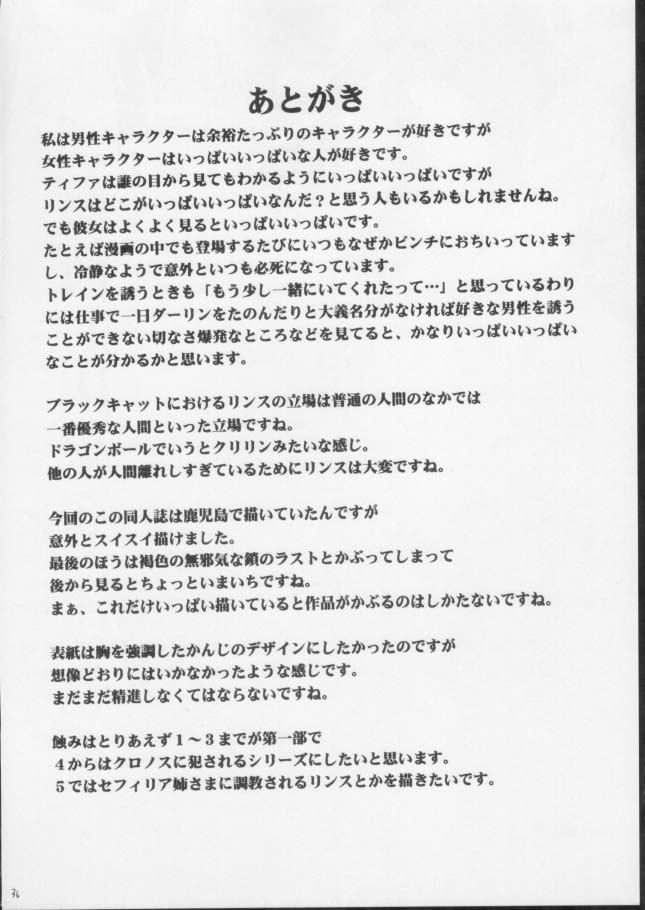 あとがき
私は男性キャラクターは余裕たっぷりのキャラクターが好きですが
女性キャラクターはいっぱいいっぱいな人が好きです。
ティファは誰の目から見てもわかるようにいっぱいいっぱいですが
リンスはどこがいっぱいいっぱいなんだ？と思う人もいるかもしれませんね。
でも彼女はよくよく見るといっぱいいっぱいです。
たとえば漫画の中でも登場するたびにいつもなぜかピンチにおちいっています
し、冷静なようで意外といつも必死になっています。
トレインを誘うときも「もう少し一緒にいてくれたって…」と思っているわり
には仕事で一日ダーリンをたのんだりと大義名分がなければ好きな男性を誘う
ことができない切なさ爆発なところなどを見てると、かなりいっぱいいっぱい
なことが分かるかと思います。
ブラックキャットにおけるリンスの立場は普通の人間のなかでは
一番優秀な人間といった立場ですね。
ドラゴンボールでいうとクリリンみたいな感じ。
他の人が人間離れしすぎているためにリンスは大変ですね。
今回のこの同人誌は鹿児島で描いていたんですが
意外とスイスイ描けました。
最後のほうは褐色の無邪気な鎖のラストとかぶってしまって
後から見るとちょっといまいちですね。
まぁ、これだけいっぱい描いていると作品がかぶるのはしかたないですね。
表紙は胸を強調したかんじのデザインにしたかったのですが
想像どおりにはいかなかったような感じです。
まだまだ精進しなくてはならないですね。
蝕みはとりあえず１～３までが第一部で
４からはクロノスに犯されるシリーズにしたいと思います。
５ではセフィリア姉さまに調教されるリンスとかを描きたいです。
36